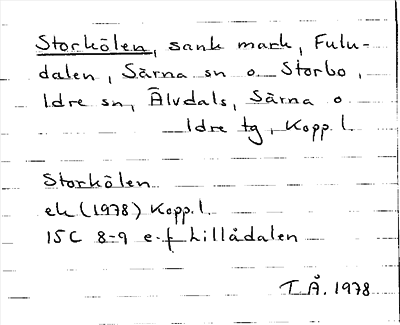 Storkölen, sank mark, Fulu-
dalen, Särna sn o Storbo,
Idre sn, Älvdals, Särna o
Idre tg, Kopp. l.
Storkölen
ek (1978) Kopp. l.
15C 8-9 e-f Lillådalen
T. Å. 1978